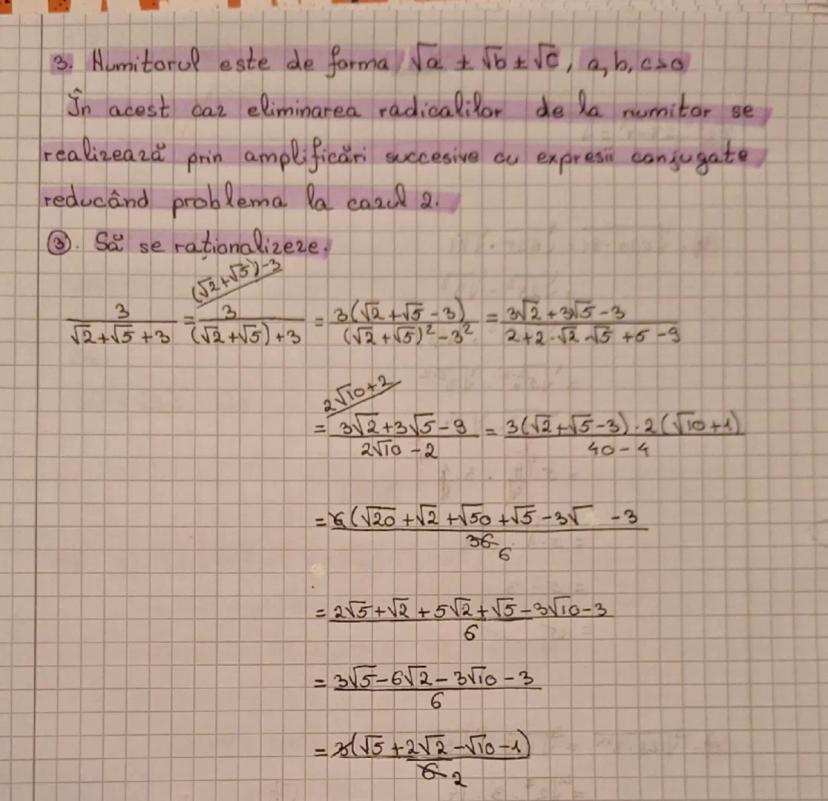 3. Numitorul este de forma √a ± √b ± √c, a,b,c>0
În acest caz eliminarea radicalilor de la numitor se
realizează prin amplificări succesive cu expresii conjugate
reducând problema la cazul 2.
③. Să se raționalizeze.
(√2+√5)-3
3/(√2+√5+3) = 3/((√2+√5)+3) = 3(√2+√5-3)/((√2+√5)²-3²) = (3√2+3√5-3)/(2+2·√2·√5+5-9)
2√10+2
= (3√2+3√5-9)/(2√10-2) = 3(√2+√5-3)·2(√10+1)/(40-4)
= 6(√20+√2+√50+√5-3√ -3/36 6
= (2√5+√2+5√2+√5-3√10-3)/6
= (3√5-6√2-3√10-3)/6
= 3(√5+2√2-√10-1)/6 2